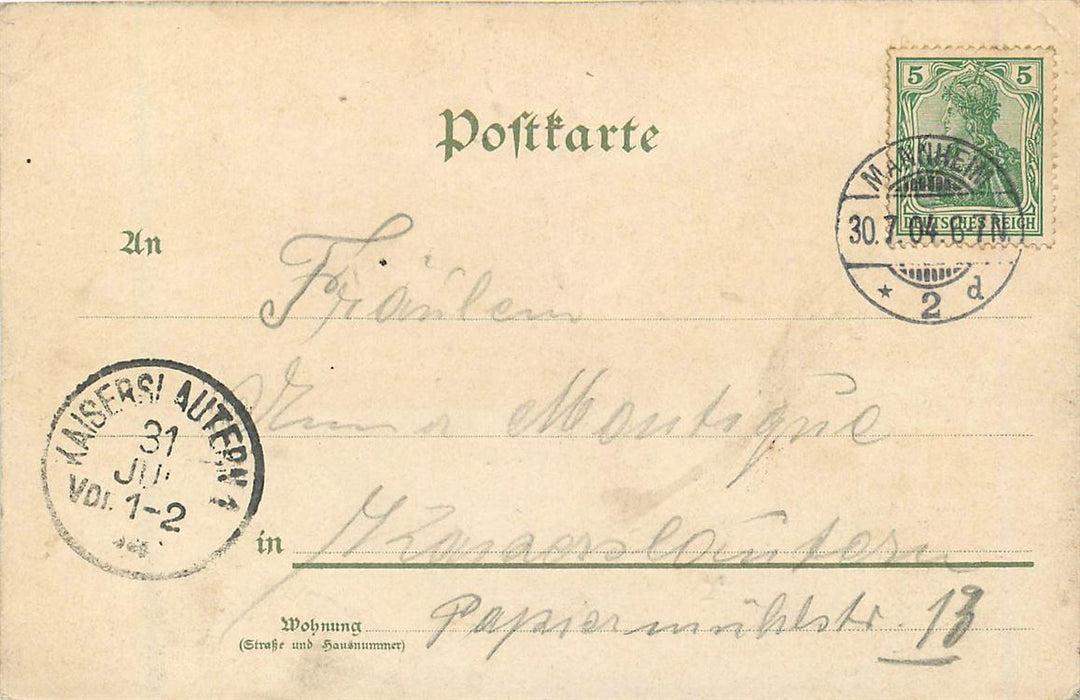 5 5
DEUTSCHES REICH
MANNHEIM
30.7.04. 6-7 N.
* 2 d
Postkarte
An
Fräulein
Anna Montique
KAISERSLAUTERN 1
31
JUL
VOR. 1-2
in Kaiserslautern
Wohnung Papiermühlstr. 13
(Straße und Hausnummer)